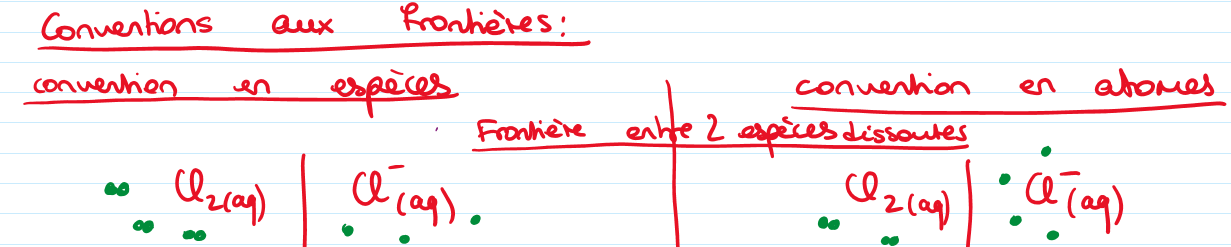 Conventions aux Frontières :
convention en espèces convention en atomes
Frontière entre 2 espèces dissoutes
Cl₂(aq) | Cl⁻(aq) Cl₂(aq) | Cl⁻(aq)